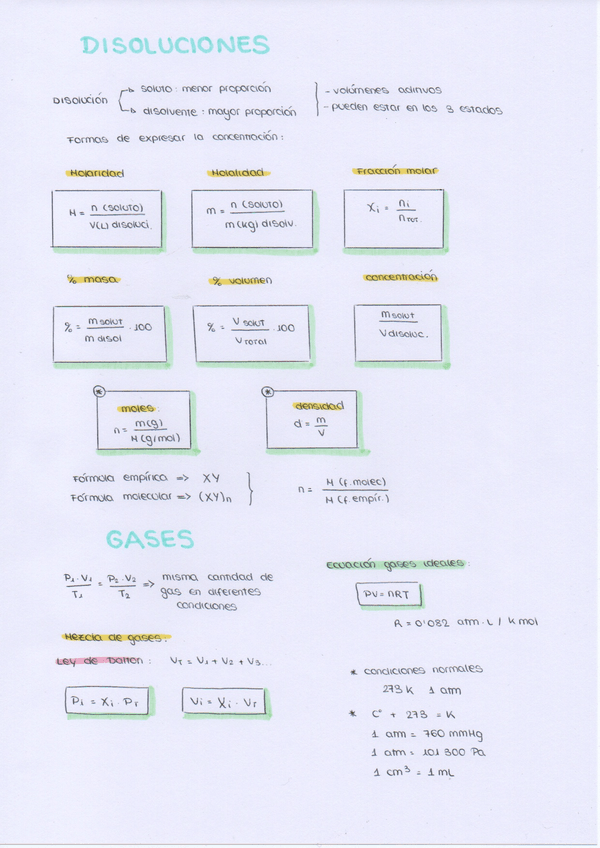 DISOLUCIONES
DISOLUCIÓN
soluto : menor proporción
disolvente : mayor proporción
- volúmenes aditivos
- pueden estar en los 3 estados
Formas de expresar la concentración :
Molaridad
M = n (soluto) / V(L) disoluci.
Molalidad
m = n (soluto) / m(kg) disolv.
Fracción molar
Xi = ni / nTOT.
% masa
% = m solut / m disol · 100
% volumen
% = V solut / V total · 100
concentración
m solut / V disoluc.
*
moles
n = m(g) / M(g/mol)
*
densidad
d = m / V
Fórmula empírica => XY
Fórmula molecular => (XY)n
n = M (f.molec) / M (f.empír.)
GASES
P1·V1 / T1 = P2·V2 / T2 => misma cantidad de
gas en diferentes
condiciones
Mezcla de gases:
Ley de Dalton : VT = V1 + V2 + V3...
Pi = Xi · PT
Vi = Xi · VT
Ecuación gases ideales:
PV = nRT
R = 0'082 atm·L / K mol
* condiciones normales
273 K 1 atm
* C° + 273 = K
1 atm = 760 mmHg
1 atm = 101 300 Pa
1 cm³ = 1 mL